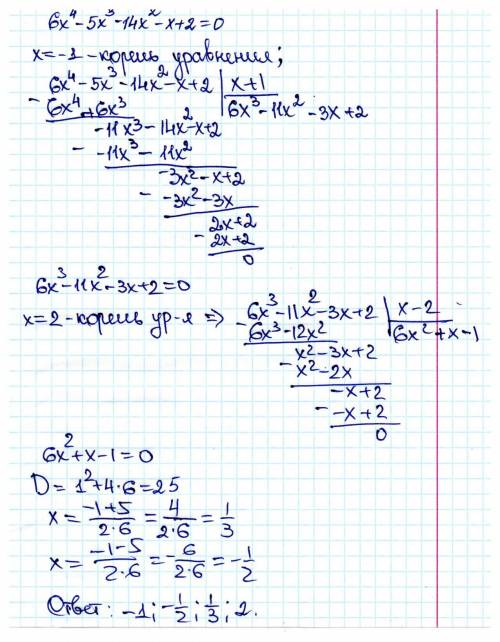 6x⁴-5x³-14x²-x+2=0
x=-1-корень уравнения;
6x⁴-5x³-14x²-x+2 | x+1
- 6x⁴+6x³ | 6x³-11x²-3x+2
-11x³-14x²-x+2
- -11x³-11x²
-3x²-x+2
- -3x²-3x
2x+2
- 2x+2
0
6x³-11x²-3x+2=0
x=2-корень ур-я ⇒
6x³-11x²-3x+2 | x-2
- 6x³-12x² | 6x²+x-1
x²-3x+2
- x²-2x
-x+2
- -x+2
0
6x²+x-1=0
D=1²+4·6=25
x=(-1+5)/(2·6)=4/(2·6)=1/3
x=(-1-5)/(2·6)=-6/(2·6)=-1/2
Ответ: -1; -1/2; 1/3; 2.